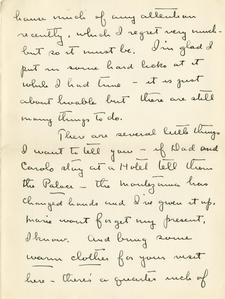 have much of any attention
recently, which I regret very much
but so it must be. I'm glad I
put in some hard looks at it
while I had time - it is just
about livable but there are still
many things to do.
There are several little things
I want to tell you - if Dad and
Carolo stay at a Hotel tell them
the Palace - the Montezuma has
changed hands and I've given it up.
Marie wont forget my present,
I know. And bring some
warm clothes for your visit
here - there's a quarter inch of